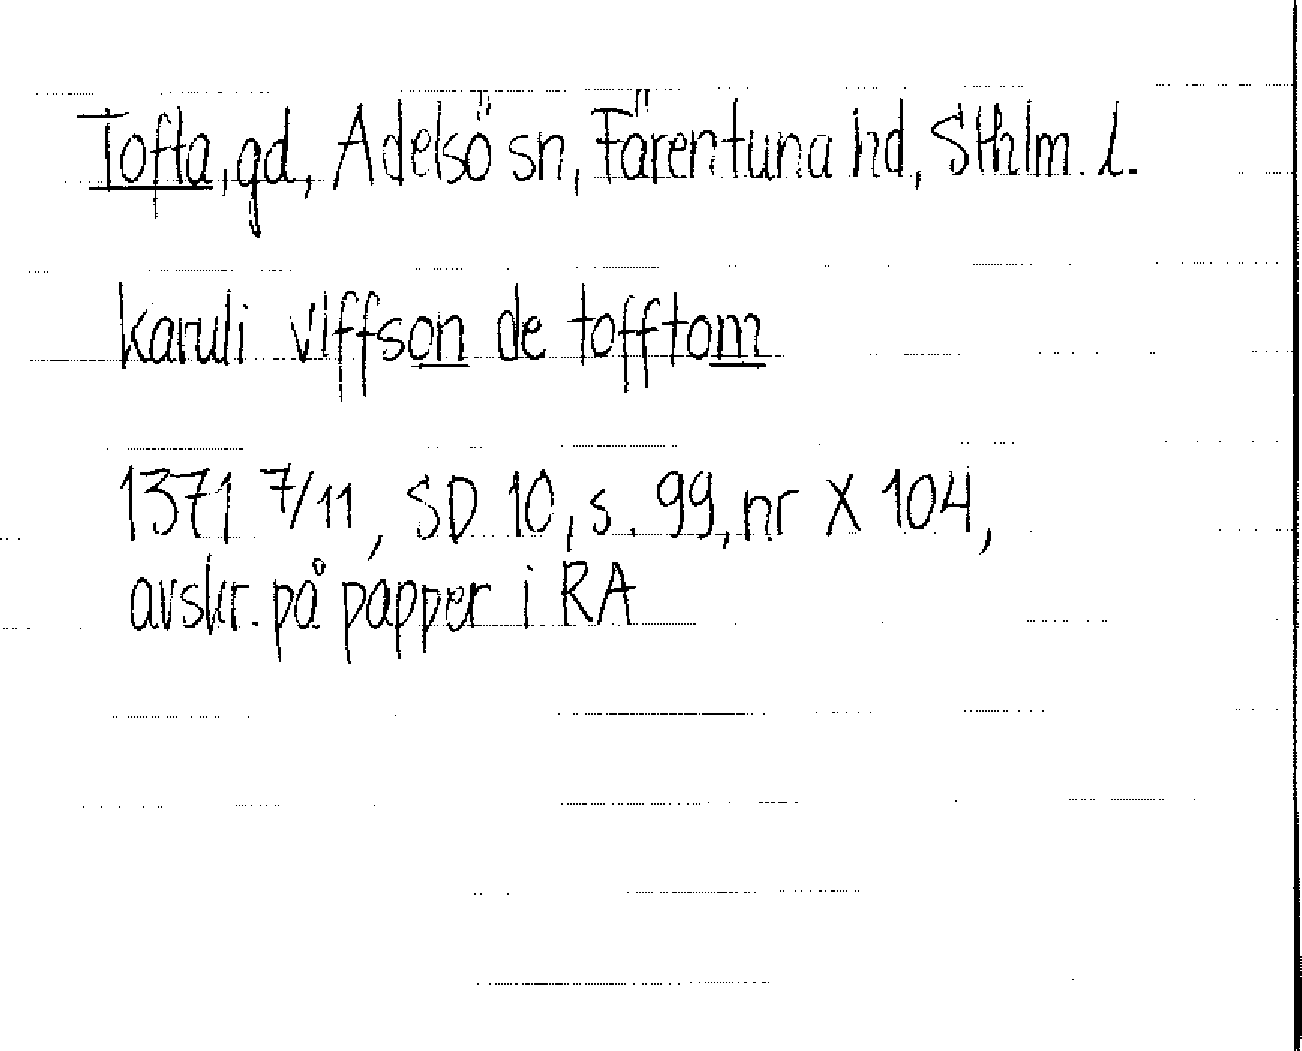 Tofta, gd, Adelsö sn, Färentuna hd, Sthlm. l.
karuli vlffson de tofftom
1371 7/11, SD 10, s. 99, nr X 104,
avskr. på papper i RA